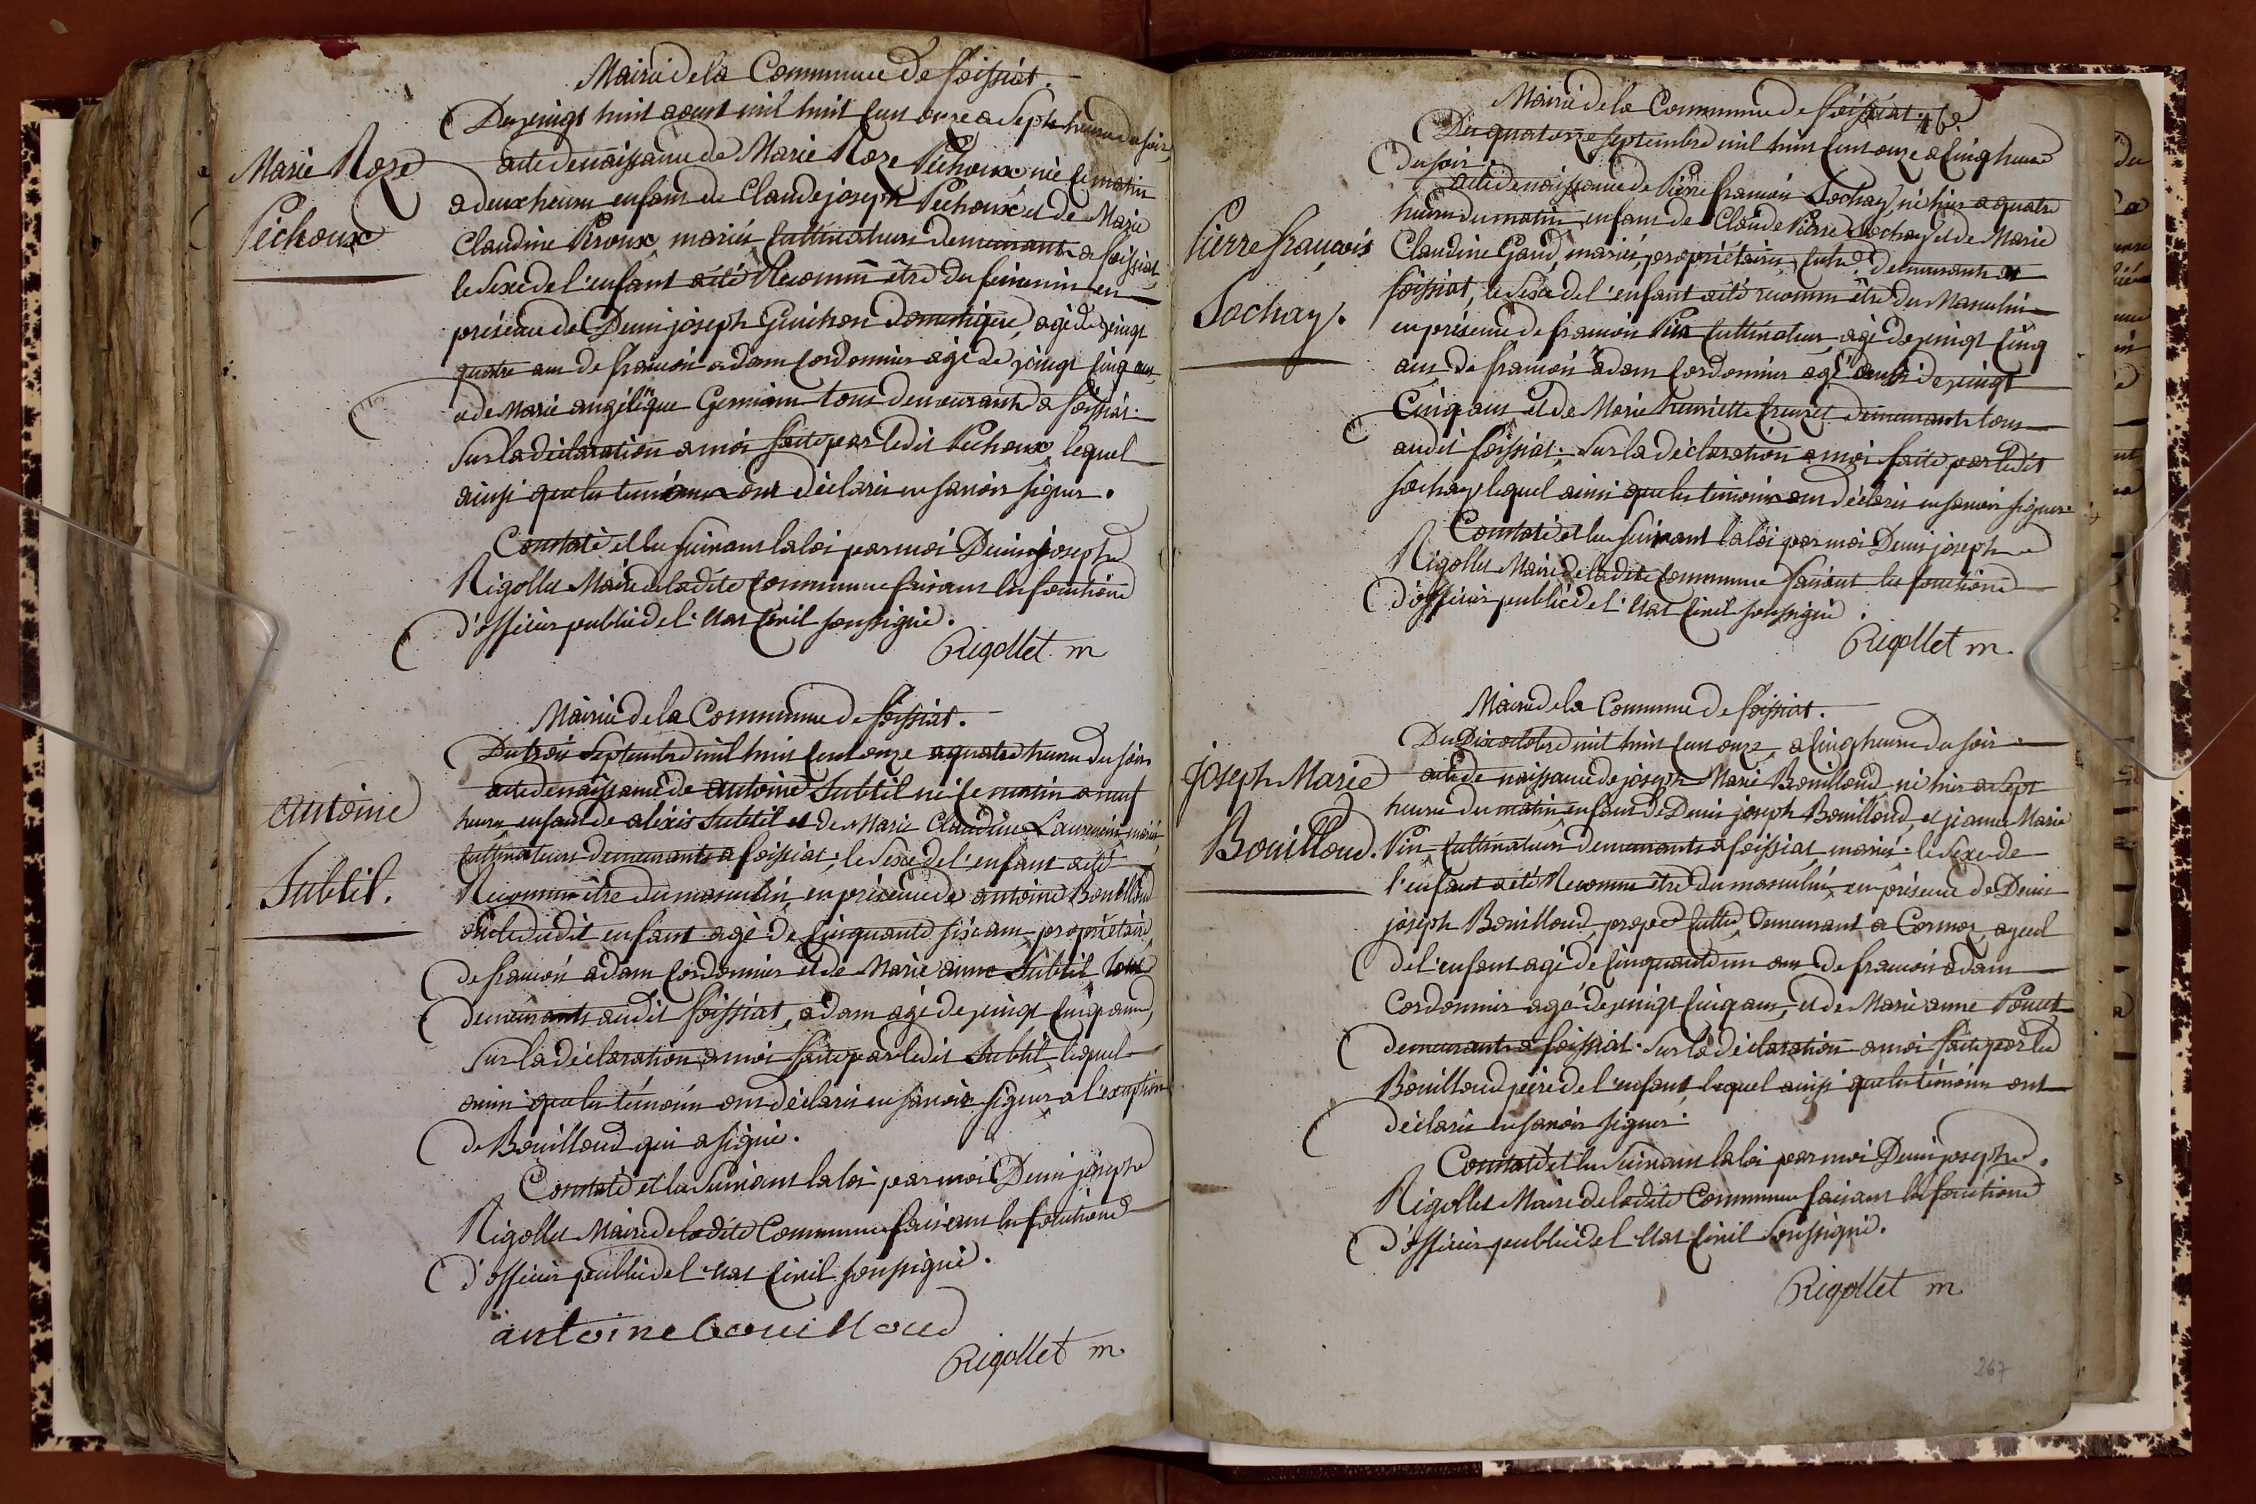 Mairie de la Commune de foissiat.
Du vingt huit aoust mil huit cent onze a Sept heures du soir
Marie Roze
Péchoux
acte de naissance de Marie Roze Péchoux née ce matin
a deux heures enfant de Claude joseph Péchoux et de Marie
Claudine Peroux mariés cultivateurs demeurants a foissiat
le Sexe de l'enfant a été Reconnu être du feminin en
présence de Denis joseph Guichon domestique, agé de vingt
quatre ans de francois adam Cordonnier agé de vingt cinq ans
et de Marie angélique Germain tous demeurants a foissiat.
Sur la déclaration a moi faite par ledit Péchoux, lequel
ainsi que les témoins ont déclarés ne savoir signer.
Constaté et lu suivant la loi par moi Denis joseph
Rigollet Maire de ladite Commune faisant les fonctions
d'officier public de l'état Civil soussigné.
Rigollet m
Mairie de la Commune de foissiat.
Du trois Septembre mil huit cent onze a quatre heures du soir
antoine
Subtil.
acte de naissance de antoine Subtil né ce matin a neuf
heures enfant de aléxis Subtil et de Marie Claudine Laurencin mariés,
cultivateurs demeurants a foissiat; le Sexe de l'enfant a été
Reconnu être du masculin, en présence de antoine Bouilloud
oncle dudit enfant agé de cinquante six ans, propriétaire,
de francois adam Cordonnier et de Marie anne Subtil, tous
demeurants audit foissiat, adam agé de vingt cinq ans,
Sur la déclaration a moi faite par ledit Subtil, lequel
ainsi que les témoins ont déclarés ne savoir signer a l'exception
de Bouilloud qui a signé.
Constaté et lu Suivant la loi par moi Denis joseph
Rigollet Maire de ladite Commune faisant les fonctions
d'officier public de l'état Civil soussigné.
antoine bouilloud
Rigollet m.
Mairie de la Commune de foissiat.
Du quatorze septembre mil huit cent onze a cinq heures
du soir
Pierre françois
Sochay.
acte de naissance de Pierre francois Sochay, né hier a quatre
heures du matin, enfant de Claude Pierre Sochay et de Marie
Claudine Gaud, mariés, propriétaires, cultrs. demeurants a
foissiat, le Sexe de l'enfant a été reconnu être du Masculin
en présence de francois Pin cultivateur, agé de vingt cinq
ans de francois adam Cordonnier agé aussi de vingt
cinq ans et de Marie henriette demeurants tous
audit foissiat. Sur la déclaration a moi faite par ledit
Sochay lequel ainsi que les témoins ont déclarés ne savoir signer.
Constaté et lu suivant la loi par moi Denis joseph
Rigollet Maire de ladite Commune faisant les fonctions
d'officier public de l'état Civil soussigné.
Rigollet m.
Mairie de la Commune de foissiat.
Du Dix octobre mil huit cent onze, a cinq heures du soir.
joseph Marie
Bouilloud.
acte de naissance de joseph Marie Bouilloud né hier a Sept
heures du matin enfant de Denis joseph Bouilloud, et jeanne Marie
Pin cultivateurs demeurants a foissiat, mariés. le Sexe de
l'enfant a été Reconnu être du masculin, en présence de Denis
joseph Bouilloud, propre. cultr. demeurant a Cormoz, ayeul
de l'enfant agé de cinquante un ans de francois adam
Cordonnier agé de vingt cinq ans, et de Marie anne Poncet
demeurants a foissiat. Sur la déclaration a moi faite par led
Bouilloud père de l'enfant, lequel ainsi que les témoins ont
déclarés ne savoir signer.
Constaté et lu Suivant la loi par moi Denis joseph
Rigollet Maire de ladite Commune faisant les fonctions
d'officier public de l'état Civil Soussigné.
Rigollet m
267